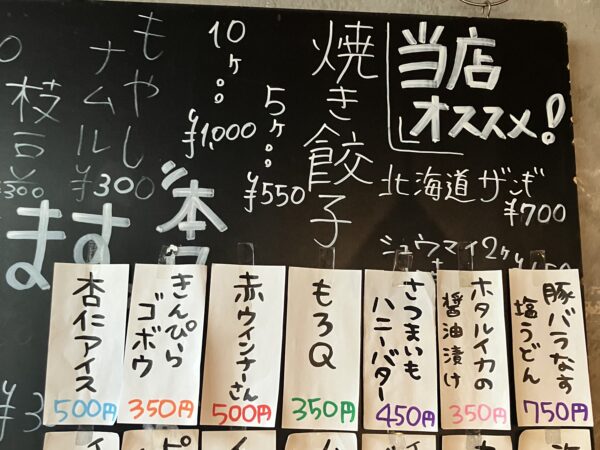 当店
オススメ!
北海道ザンギ
¥700
シュウマイ2ケ
焼き餃子
5ケ
¥550
10ケ
¥1,000
もやし
ナムル
¥300
枝豆
¥300
ます
本
豚バラなす
塩うどん
750円
ホタルイカの
醤油漬け
350円
さつまいも
ハニーバター
450円
もろQ
350円
赤ウインナーさん
500円
きんぴら
ゴボウ
350円
杏仁アイス
500円